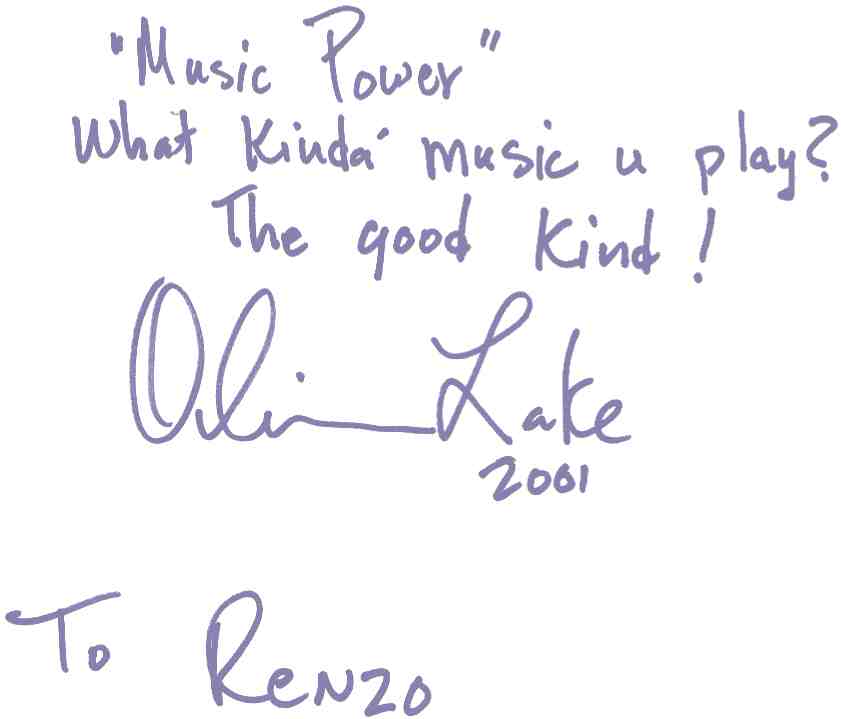 "Music Power"
What Kinda' music u play?
The good Kind!
Oli Lake
2001
To Renzo